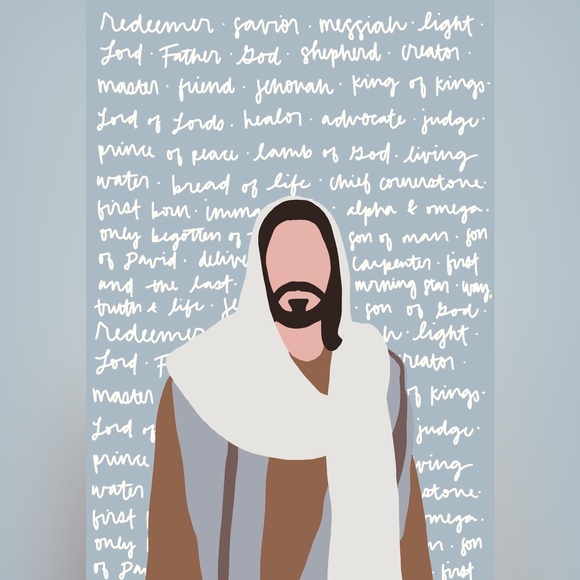 Redeemer · savior · messiah · light ·
Lord · Father · God · shepherd · creator ·
master · friend · jehovah · king of kings ·
Lord of Lords · healer · advocate · judge ·
prince of peace · lamb of God · living
water · bread of life · chief cornerstone ·
first born · imma alpha & omega ·
only begotten of son of man · son
of David · delive carpenter · first
and the last morning star · way,
truth & life · son of God ·
Redeemer light ·
Lord reator ·
master of kings ·
Lord of judge ·
prince ving
water stone ·
first mega ·
only son
of Da first